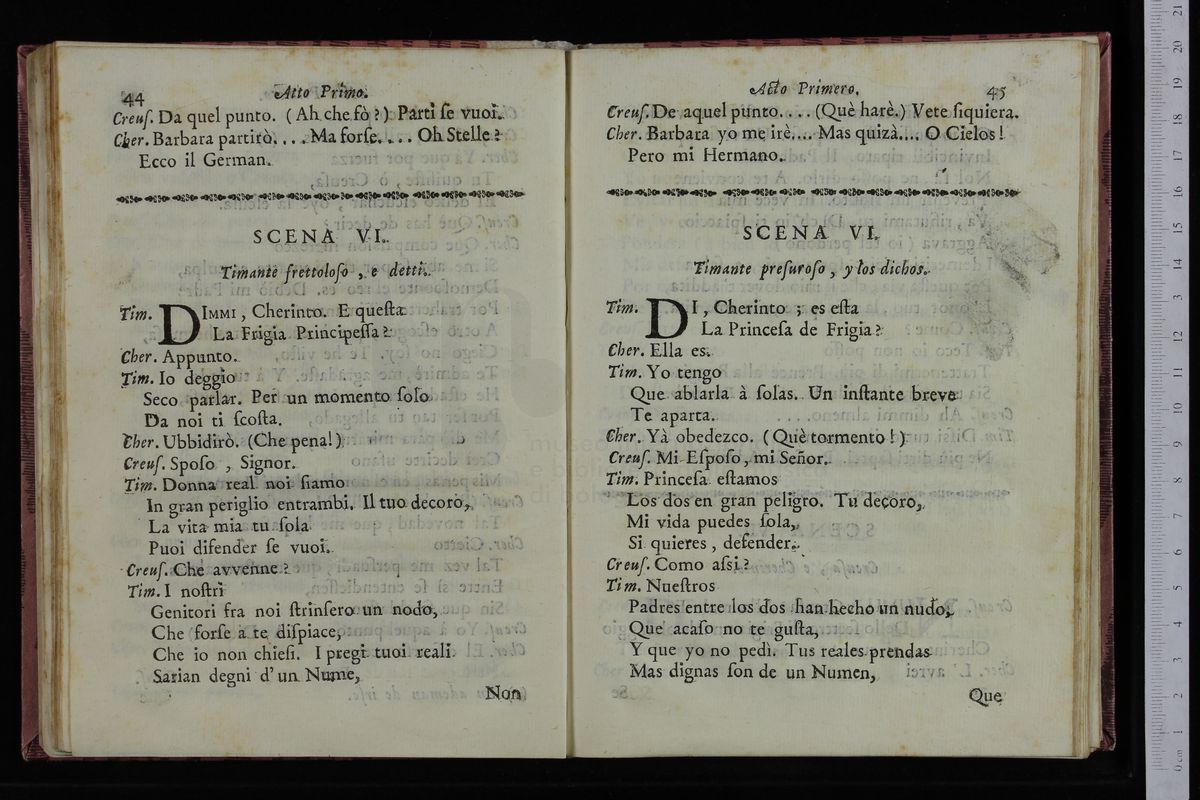 44
Atto Primo.
Creuſ. Da quel punto. (Ah che fò?) Parti ſe vuoi.
Cher. Barbara partirò.... Ma forſe.... Oh Stelle?
Ecco il German.
SCENA VI.
Timante frettoloſo, e detti.
Tim. DIMMI, Cherinto. E queſta
La Frigia Principeſſa?
Cher. Appunto.
Tim. Io deggio
Seco parlar. Per un momento ſolo
Da noi ti ſcoſta.
Cher. Ubbidirò. (Che pena!)
Creuſ. Spoſo, Signor.
Tim. Donna real noi ſiamo
In gran periglio entrambi. Il tuo decoro,
La vita mia tu ſola
Puoi difender ſe vuoi.
Creuſ. Che avvenne?
Tim. I noſtri
Genitori fra noi ſtrinſero un nodo,
Che forſe a te diſpiace,
Che io non chieſi. I pregi tuoi reali
Sarian degni d'un Nume,
Non
Acto Primero.
45
Creuſ. De aquel punto.... (Què harè.) Vete ſiquiera.
Cher. Barbara yo me irè.... Mas quizà.... O Cielos!
Pero mi Hermano.
SCENA VI.
Timante preſuroſo, y los dichos.
Tim. DI, Cherinto; es eſta
La Princeſa de Frigia?
Cher. Ella es.
Tim. Yo tengo
Que ablarla à ſolas. Un inſtante breve
Te aparta.
Cher. Yà obedezco. (Què tormento!)
Creuſ. Mi Eſpoſo, mi Señor.
Tim. Princeſa eſtamos
Los dos en gran peligro. Tu decoro,
Mi vida puedes ſola,
Si quieres, defender.
Creuſ. Como aſsi?
Tim. Nueſtros
Padres entre los dos han hecho un nudo,
Que acaſo no te guſta,
Y que yo no pedì. Tus reales prendas
Mas dignas ſon de un Numen,
Que